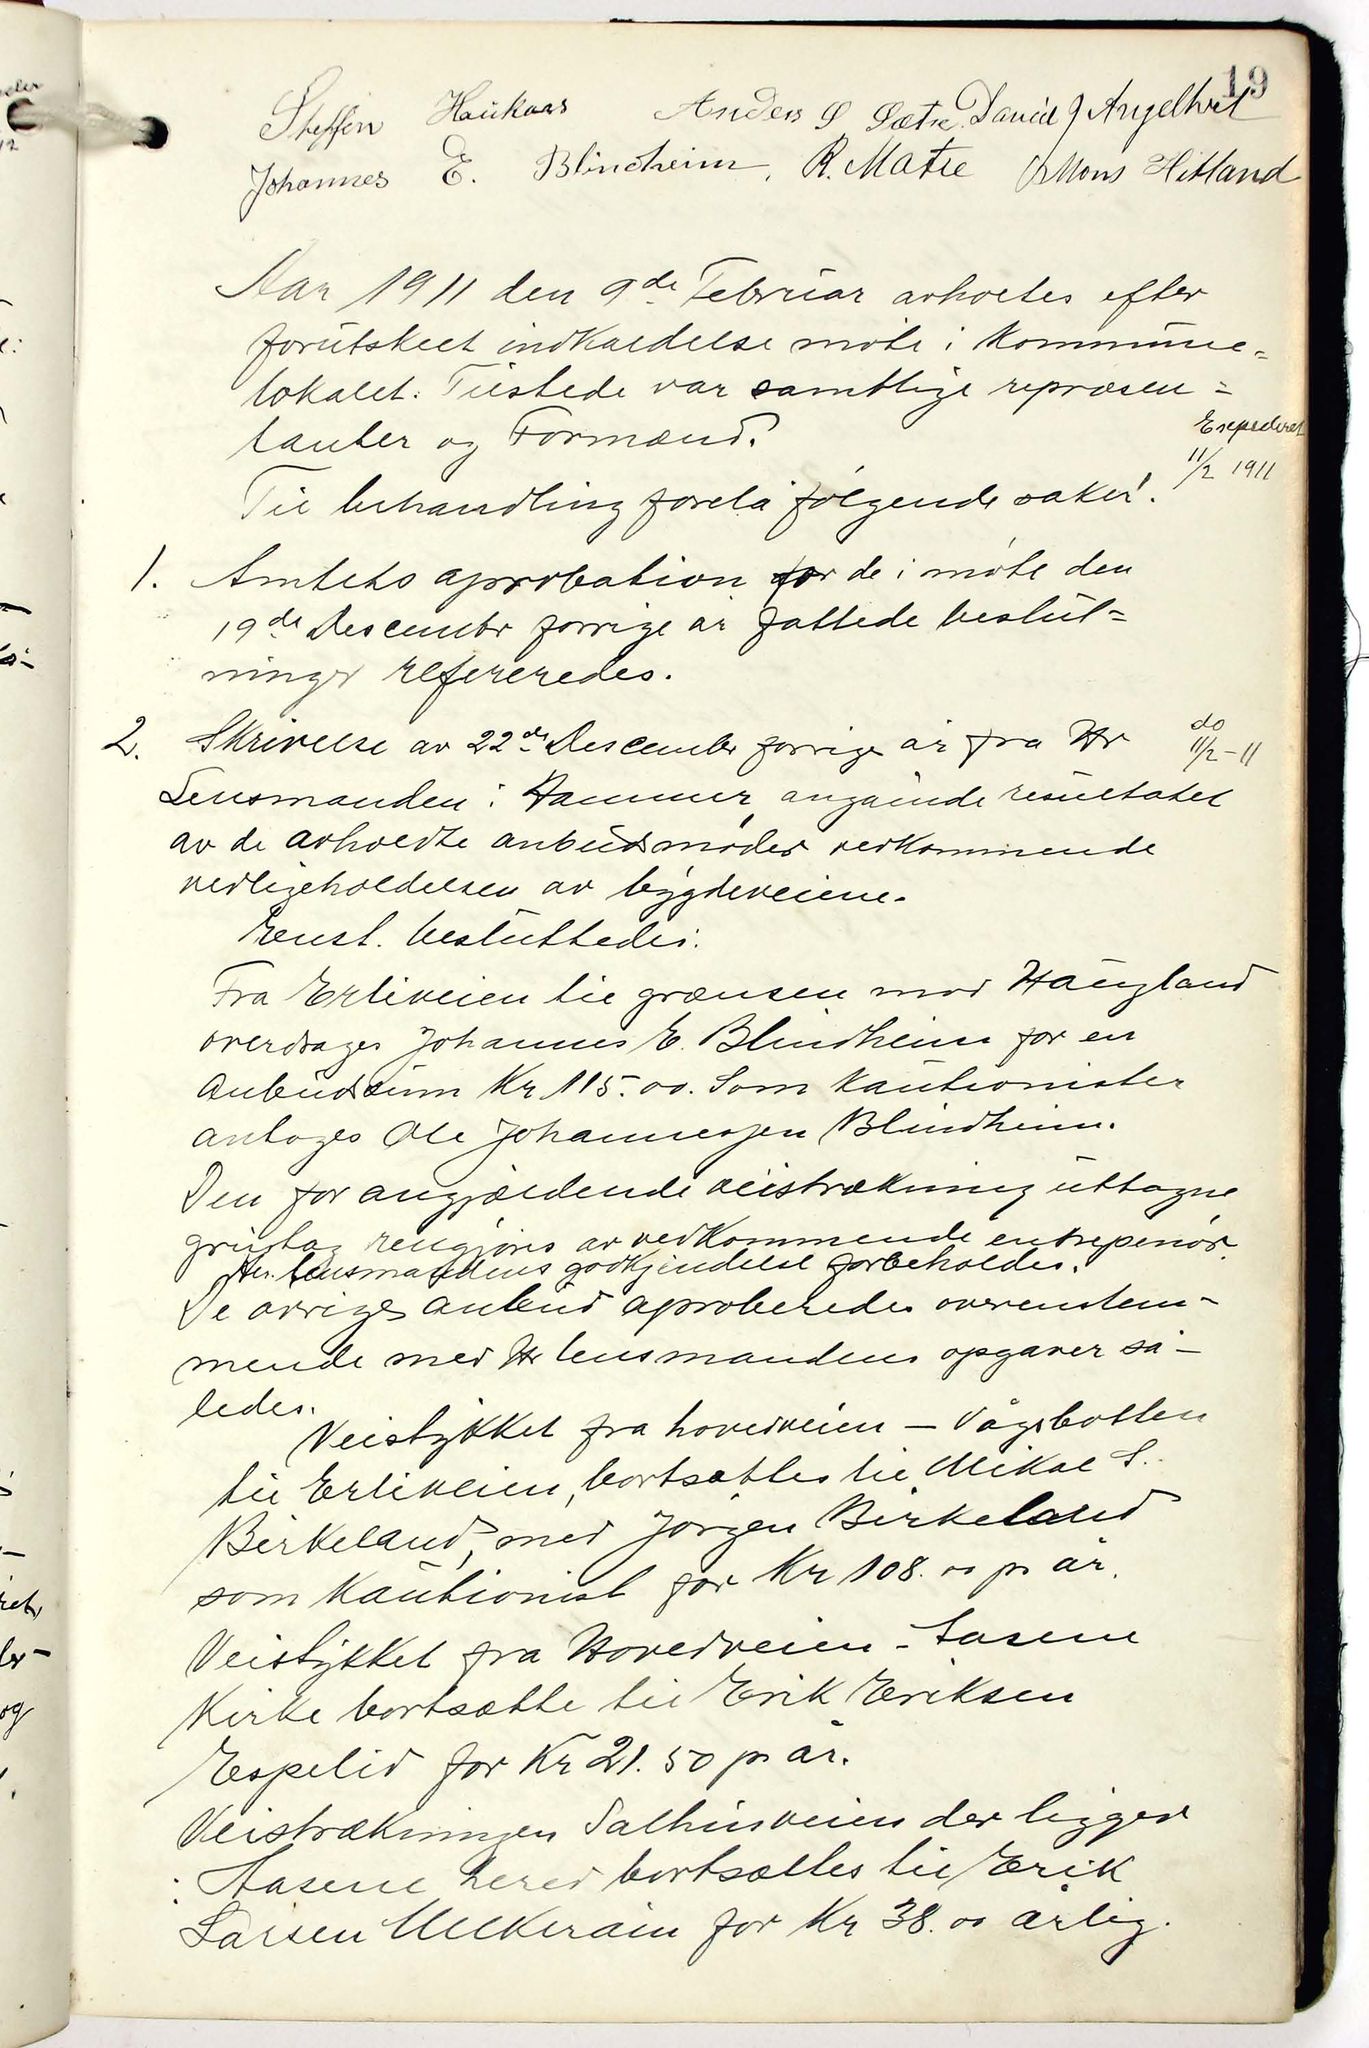 19
Steffen Haukaas Anders S Sætre. David J Angeltvet
Johannes E. Blindheim, R. Matre Mons Hitland
Aar 1911 den 9de Februar avholtes efter
forutskeet indkaldelse møte i Kommune=
lokalet. Tilstede var samtlige repræsen=
tanter og Formænd.
Expederet
11/2 1911
Til behandling forelå følgende saker:
1. Amtets aprobation for de i møte den
19de Descember forrige år fattede beslut=
ninger refereredes.
2. Skrivelse av 22de Descember forrige år fra Hr
do
11/2 - 11
Lensmanden i Hammer angående resultatet
av de avholdte anbudsmøder vedkommende
vedligeholdelsen av bygdeveiene.
Enst. besluttedes:
Fra Erliveien til grænsen mod Haugland
overdrages Johannes E. Blindheim for en
Anbudsum Kr 115.00. Som Kautionister
antoges Ole Johannessen Blindheim.
Den for angjældende veistrækning uttagne
grustag rengjøres av vedkommende entrepenør.
Hr. lensmandens godkjendelse forbeholdes.
De øvrige anbud aproberedes overenstem-
mende med Hr lensmandens opgaver så-
ledes.
Veistykket fra hovedveien - Vågsbotten
til Erliveien, bortsættes til Mikal S.
Birkeland, med Jørgen Birkeland
som Kautionist for Kr 108.00 pr år.
Veistykket fra Hovedveien - Aasene
Kirke bortsætte til Erik Eriksen
Espelid for Kr 21.50 pr år.
Veistrækningen Salhusveien der ligger
i Aasene hered bortsættes til Erik
Larsen for Kr 38.00 årlig.